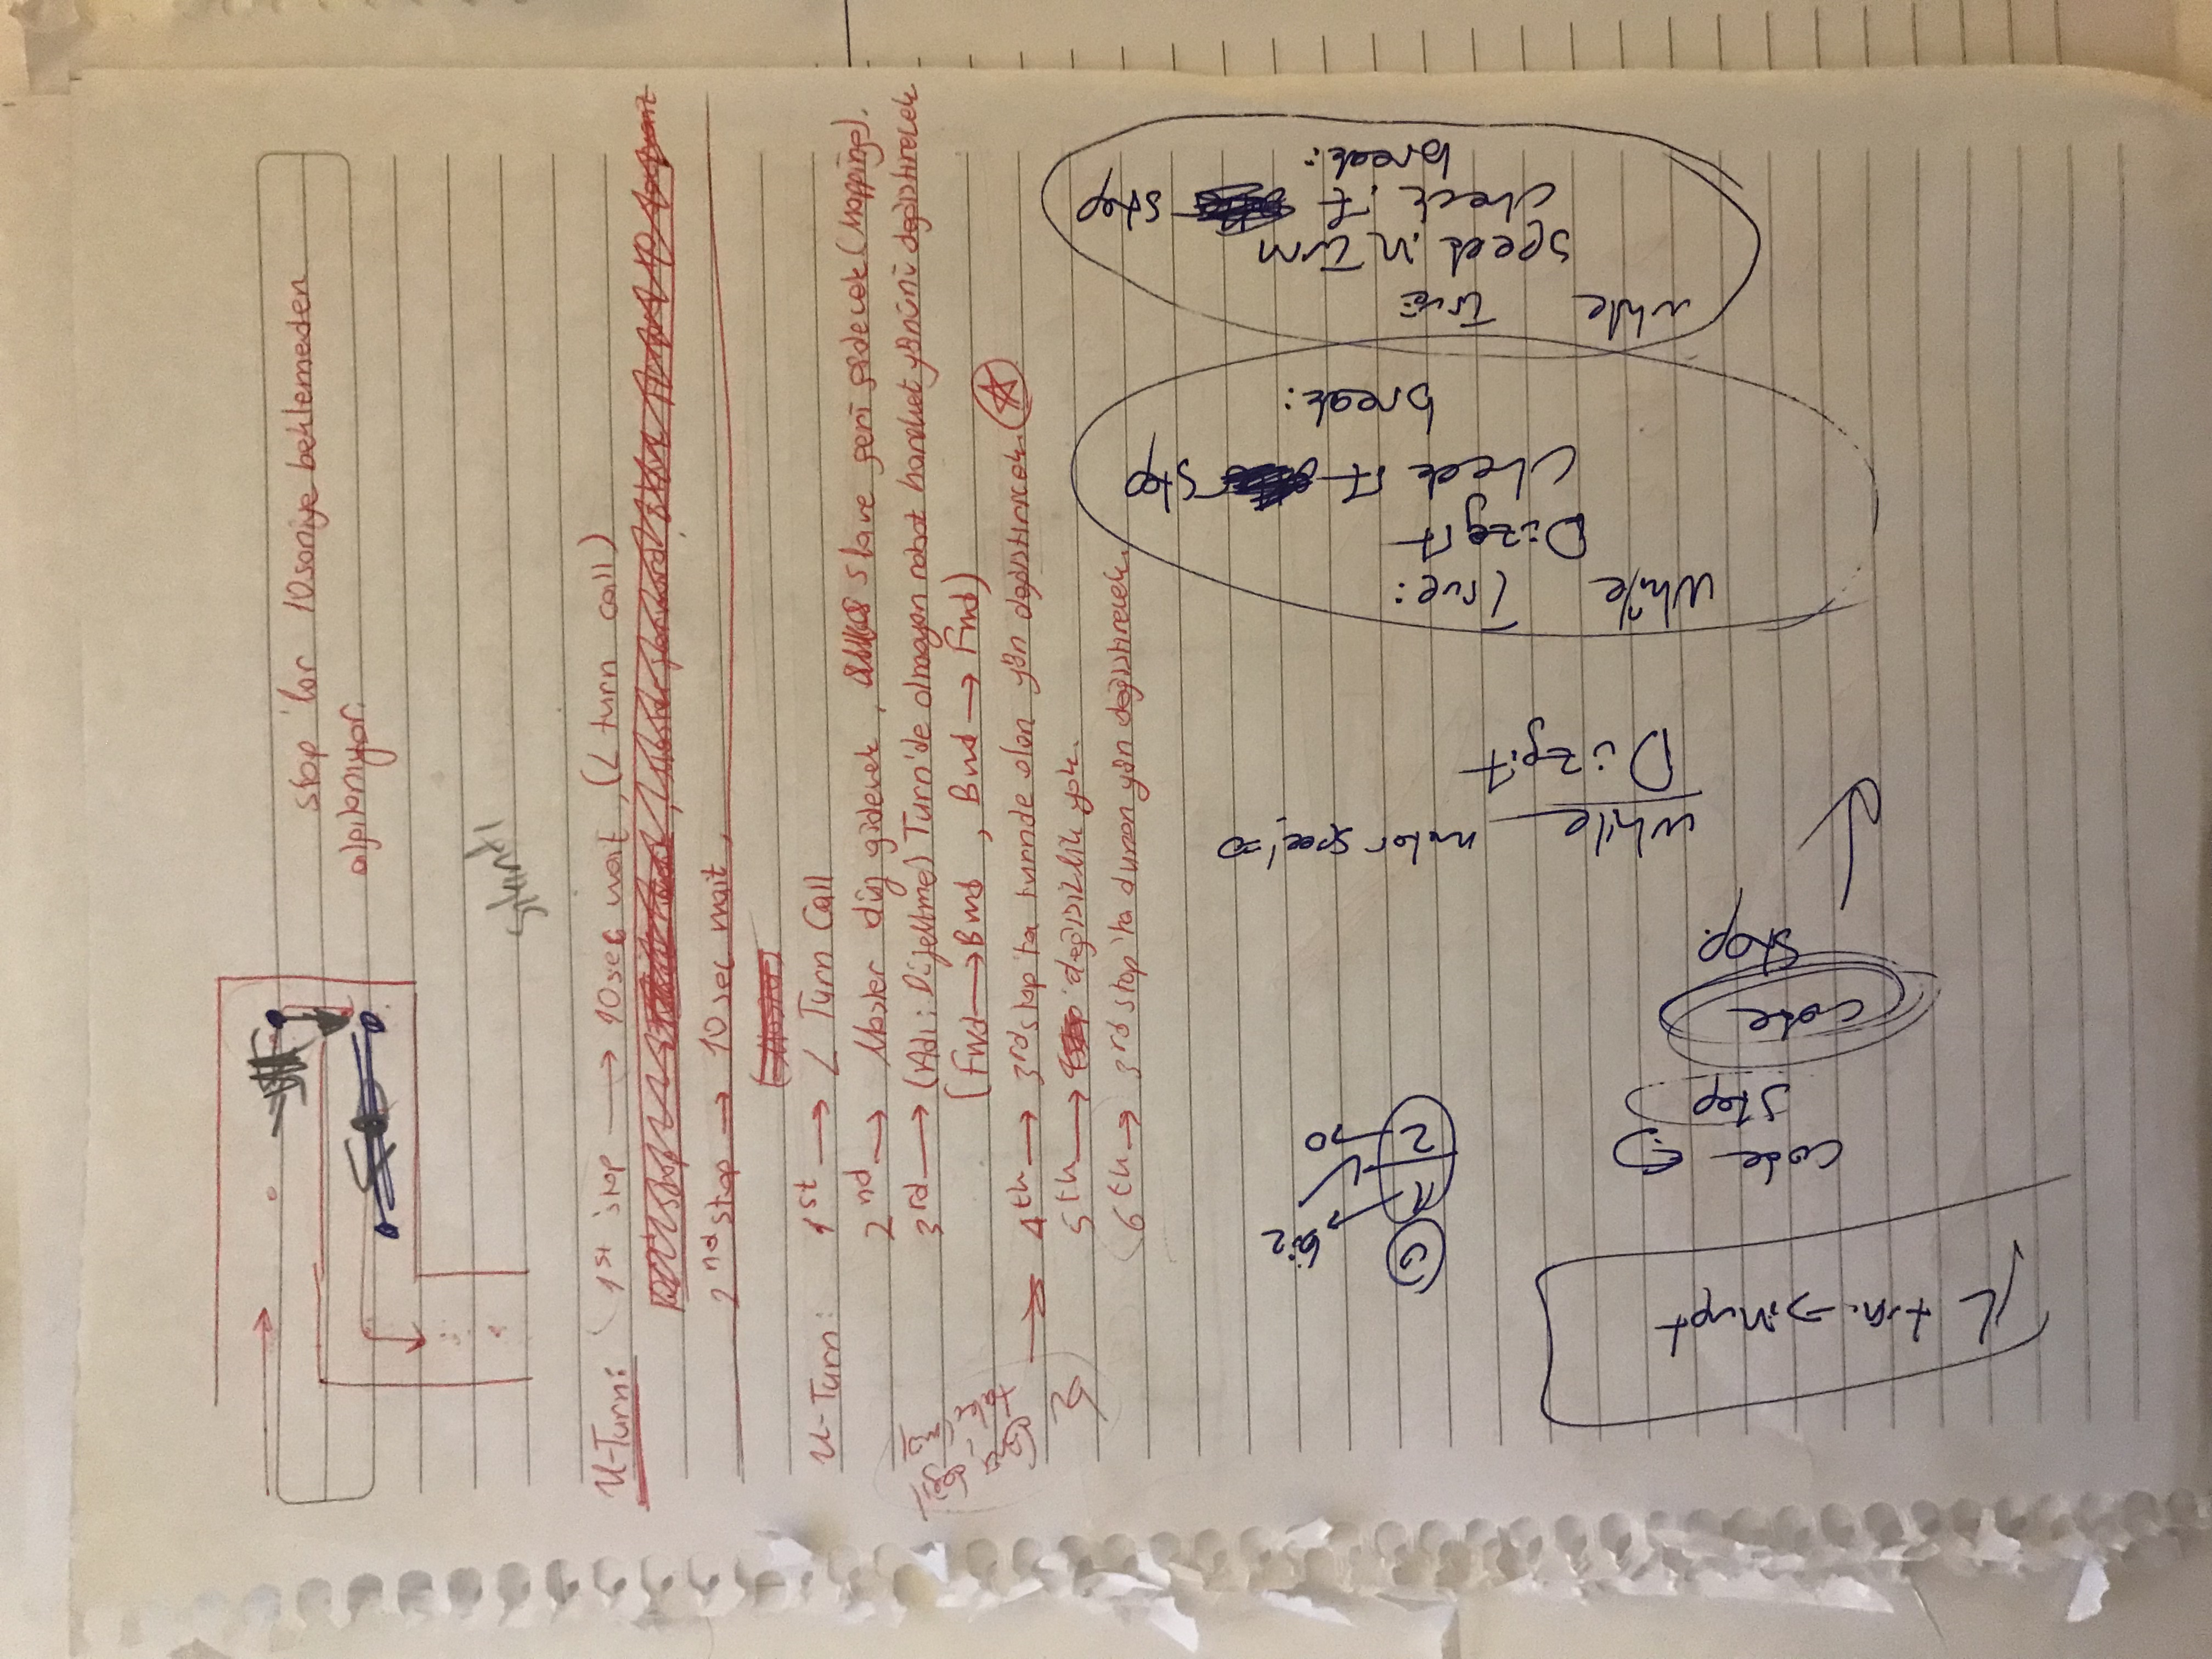 stop'lar 10 saniye beklemeden
algılanıyor.
Sıkıntı
U-Turn: 1st stop → 10sec wait, (L turn call)
2nd stop → 10 sec wait,
U-Turn: 1st → L Turn Call
2nd → Master düz gidecek, slave geri gidecek (Mapping).
3rd → (Adı: Düzeltme) Turn'de olmayan robot hareket yönünü değiştirecek
(Fwd → Bwd, Bwd → Fwd)
4th → 3rd stop'ta turnde olan yön değiştirecek.
5th → değişiklik yok.
6th → 3rd stop'ta duran yön değiştirecek.
0
1 → biz
2 → 0
L turn → input
code
stop
code
stop.
while motor speed != 0
Düzgit
while True:
Düzgit
check if stop
break:
while True:
speed in Turn
check if stop
break: